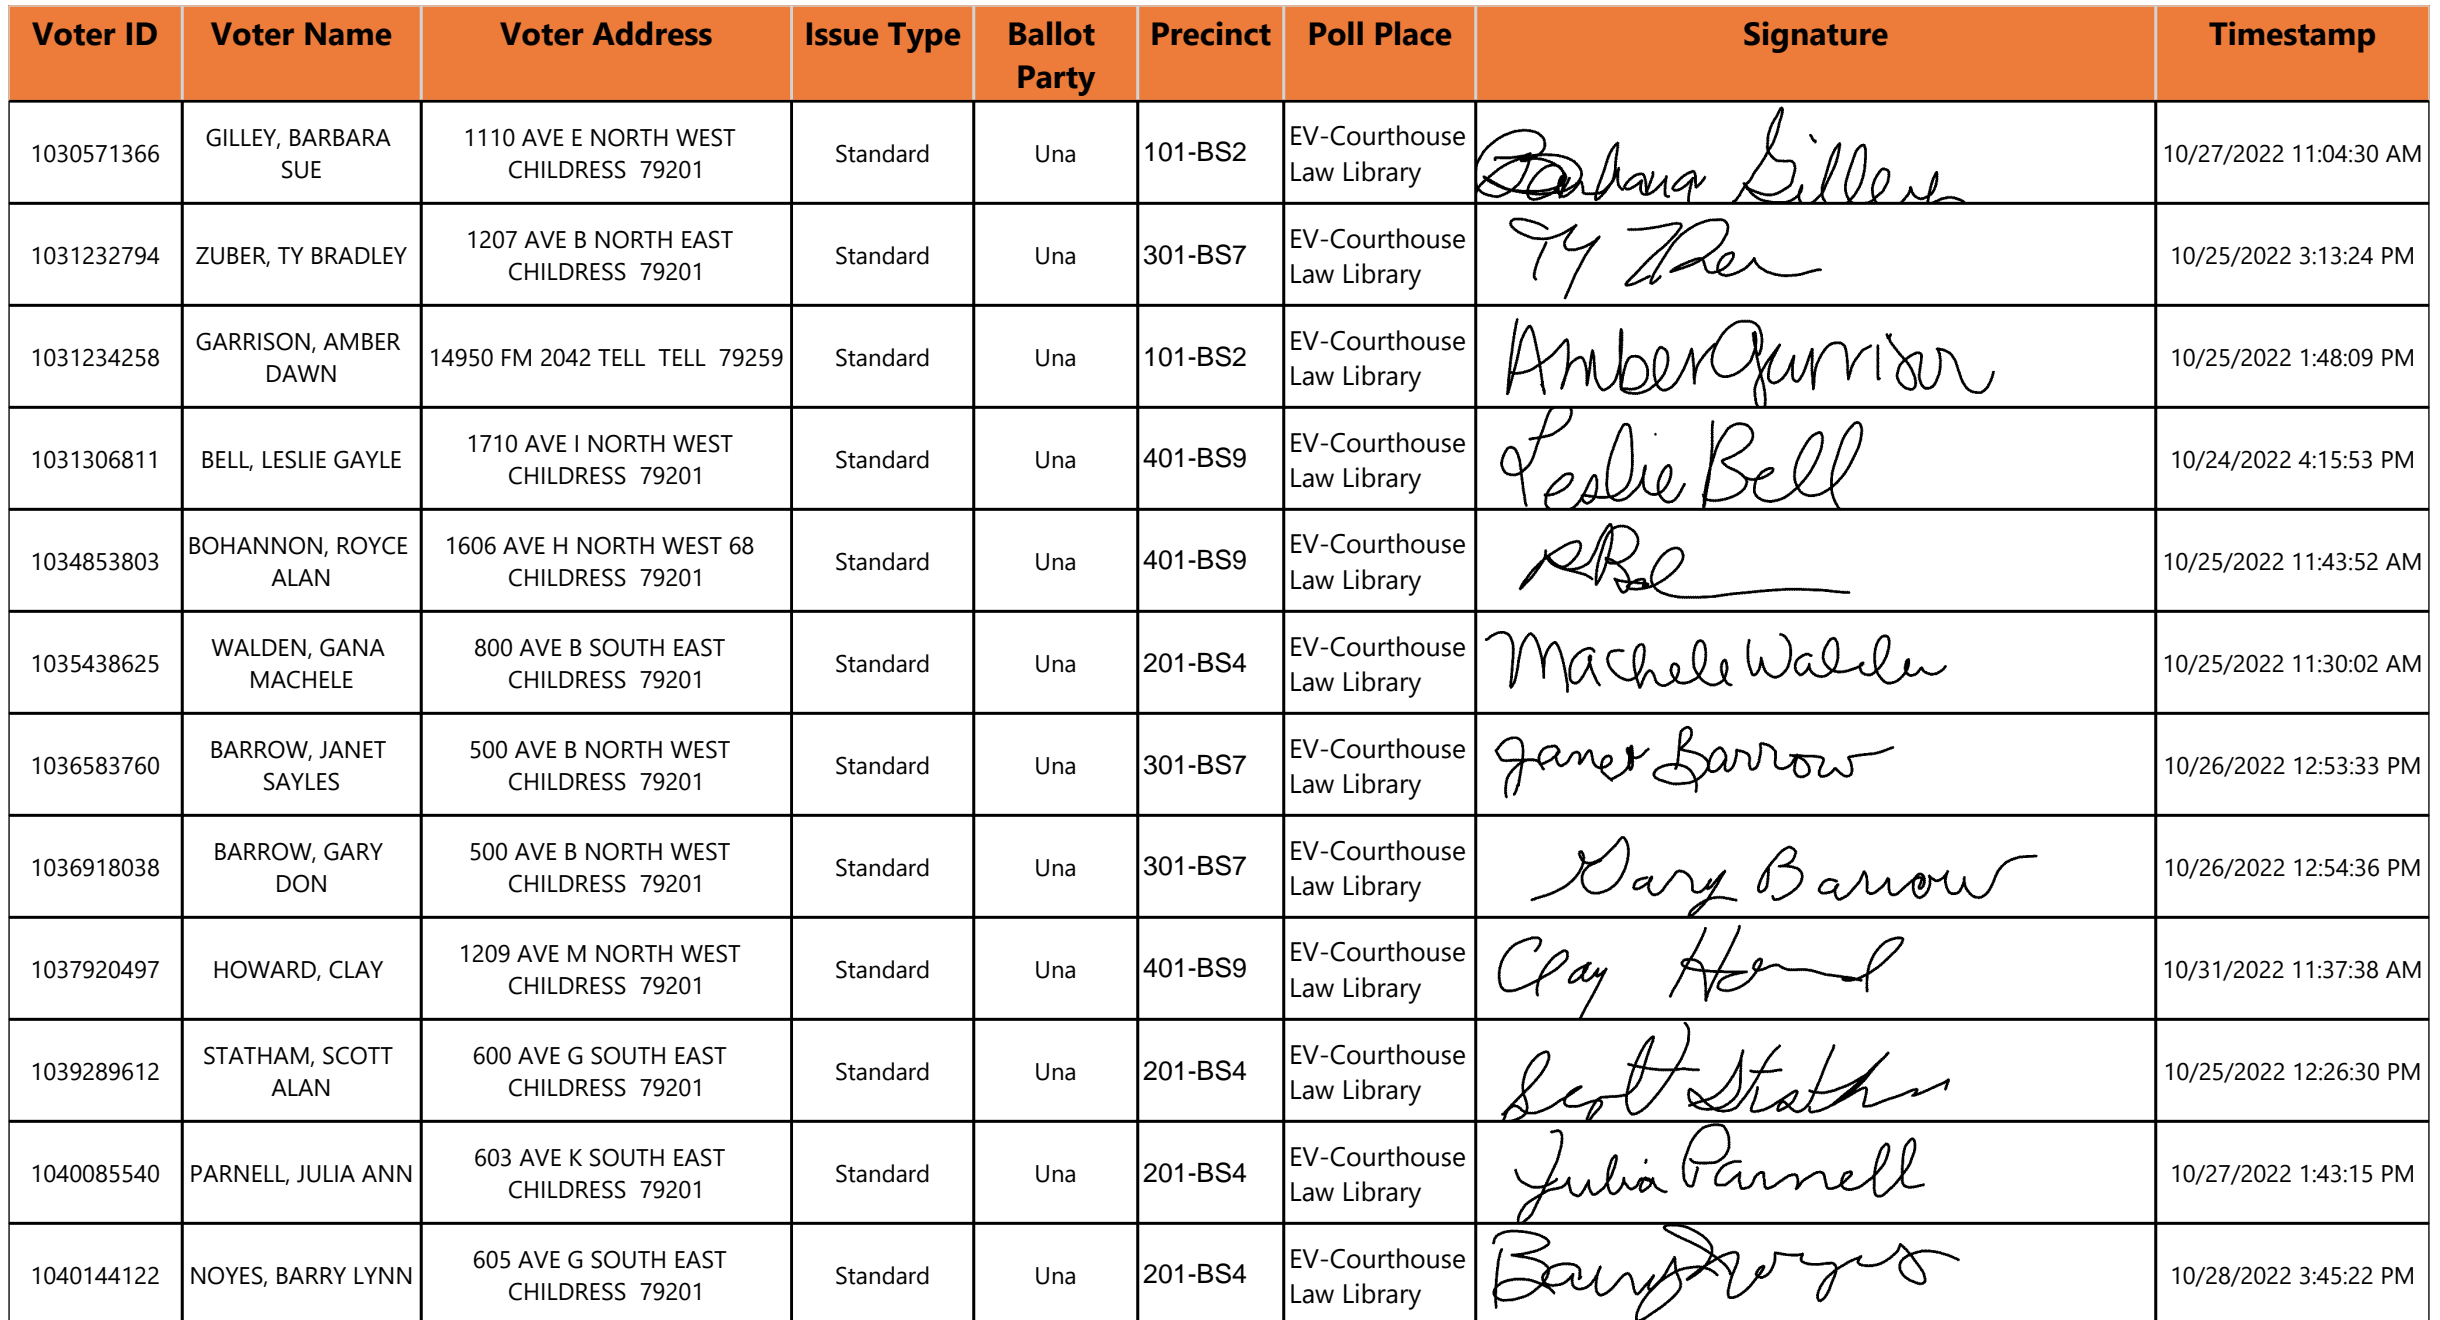 Voter ID Voter Name Voter Address Issue Type Ballot Party Precinct Poll Place Signature Timestamp
1030571366 GILLEY, BARBARA SUE 1110 AVE E NORTH WEST CHILDRESS 79201 Standard Una 101-BS2 EV-Courthouse Law Library Barbara Gilley 10/27/2022 11:04:30 AM
1031232794 ZUBER, TY BRADLEY 1207 AVE B NORTH EAST CHILDRESS 79201 Standard Una 301-BS7 EV-Courthouse Law Library Ty 10/25/2022 3:13:24 PM
1031234258 GARRISON, AMBER DAWN 14950 FM 2042 TELL TELL 79259 Standard Una 101-BS2 EV-Courthouse Law Library Amber Garrison 10/25/2022 1:48:09 PM
1031306811 BELL, LESLIE GAYLE 1710 AVE I NORTH WEST CHILDRESS 79201 Standard Una 401-BS9 EV-Courthouse Law Library Leslie Bell 10/24/2022 4:15:53 PM
1034853803 BOHANNON, ROYCE ALAN 1606 AVE H NORTH WEST 68 CHILDRESS 79201 Standard Una 401-BS9 EV-Courthouse Law Library 10/25/2022 11:43:52 AM
1035438625 WALDEN, GANA MACHELE 800 AVE B SOUTH EAST CHILDRESS 79201 Standard Una 201-BS4 EV-Courthouse Law Library Machele Walden 10/25/2022 11:30:02 AM
1036583760 BARROW, JANET SAYLES 500 AVE B NORTH WEST CHILDRESS 79201 Standard Una 301-BS7 EV-Courthouse Law Library Janet Barrow 10/26/2022 12:53:33 PM
1036918038 BARROW, GARY DON 500 AVE B NORTH WEST CHILDRESS 79201 Standard Una 301-BS7 EV-Courthouse Law Library Gary Barrow 10/26/2022 12:54:36 PM
1037920497 HOWARD, CLAY 1209 AVE M NORTH WEST CHILDRESS 79201 Standard Una 401-BS9 EV-Courthouse Law Library Clay 10/31/2022 11:37:38 AM
1039289612 STATHAM, SCOTT ALAN 600 AVE G SOUTH EAST CHILDRESS 79201 Standard Una 201-BS4 EV-Courthouse Law Library Scott Statham 10/25/2022 12:26:30 PM
1040085540 PARNELL, JULIA ANN 603 AVE K SOUTH EAST CHILDRESS 79201 Standard Una 201-BS4 EV-Courthouse Law Library Julia Parnell 10/27/2022 1:43:15 PM
1040144122 NOYES, BARRY LYNN 605 AVE G SOUTH EAST CHILDRESS 79201 Standard Una 201-BS4 EV-Courthouse Law Library Barry Noyes 10/28/2022 3:45:22 PM